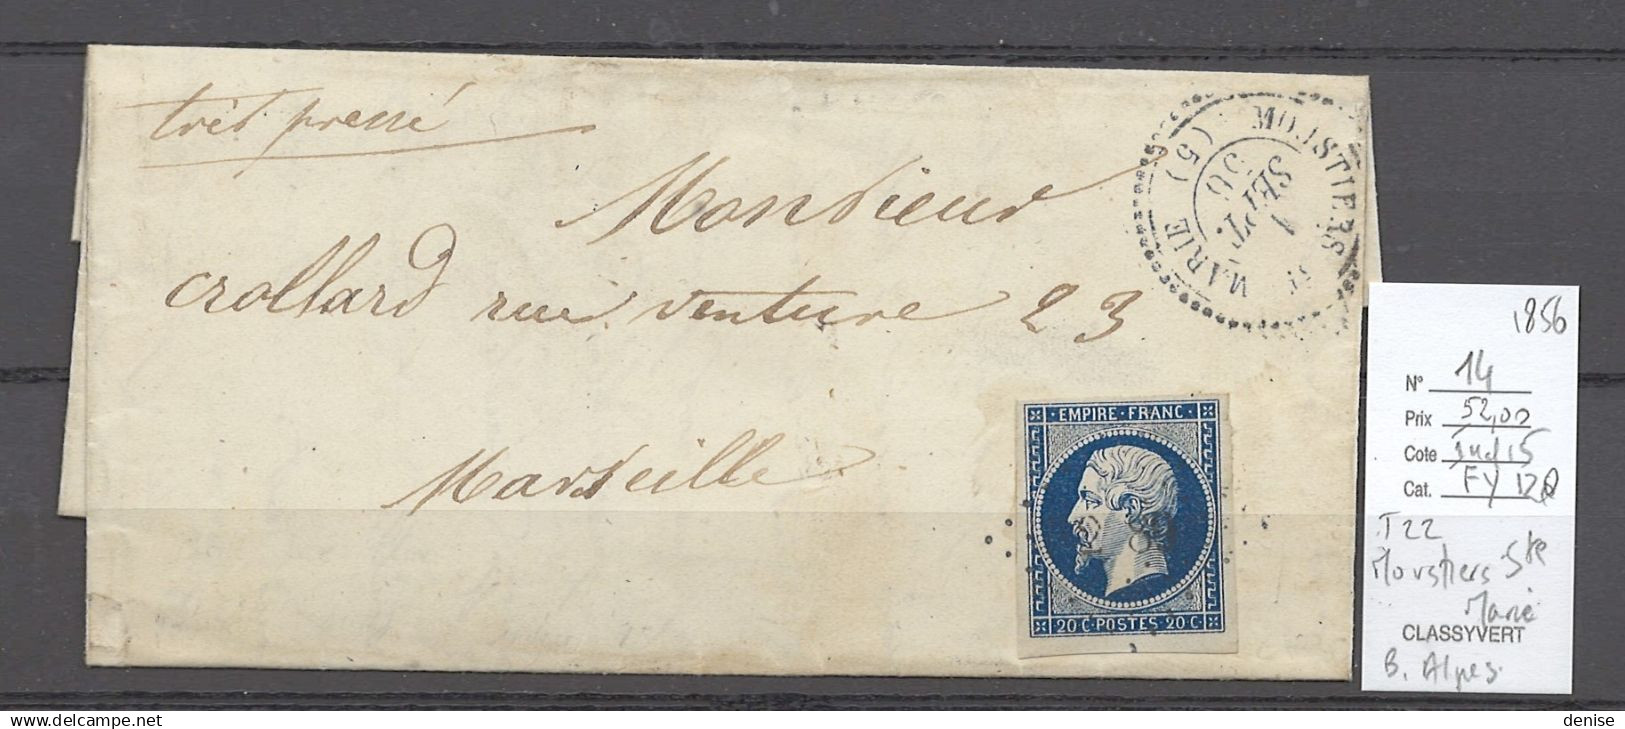 très pressé
Monsieur
crollard rue venture 23
Marseille
MOUSTIERS Ste MARIE (5)
1
SEPT.
56
EMPIRE · FRANC ·
20 C · POSTES · 20 C ·
1856
N° 14
Prix 52,00
Cote Ind 15
Cat. FY
T22
Moustiers Ste
Marie
CLASSYVERT
B. Alpes
www.delcampe.net
denise